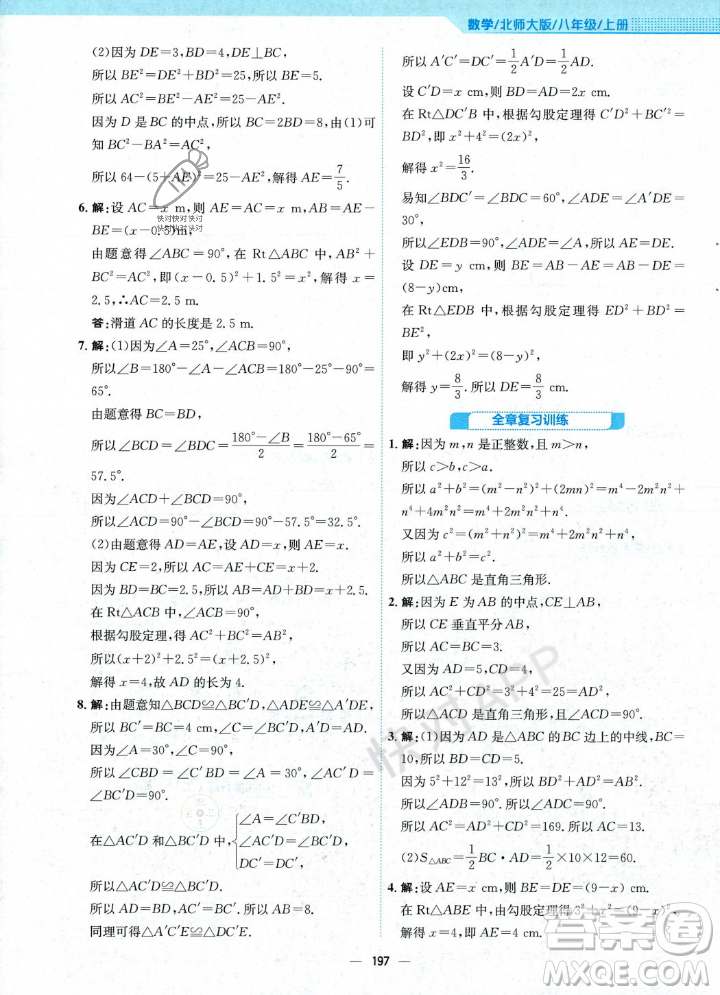 数学/北师大版/八年级/上册
(2)因为 DE=3,BD=4,DE⊥BD,
所以 BE²=DE²+BD²=25,BE=5.
所以 AC²=BE²=25.所以 AC=5.
因为 D 是 BC 的中点,所以 BC=2BD=8,由(1)可
知 BC²-BA²=AC².
所以 64-(5+AE)²=25.所以 AE=7/5.
6. 解:设 AC=x m,则 AE=AC=x m,AB=AE-
BE=(x-0.5)m,
由题意得∠ABC=90°,在 Rt△ABC 中,AB²+
BC²=AC²,即(x-0.5)²+1.5²=x²,解得 x=
2.5,∴AC=2.5 m.
答:滑道 AC 的长度是 2.5 m.
7. 解:(1)因为∠A=25°,∠ACB=90°,
所以∠B=180°-∠A-∠ACB=180°-25°-90°=
65°.
由题意得 BC=BD,
所以∠BCD=∠BDC=(180°-∠B)/2=(180°-65°)/2=
57.5°.
因为∠ACD+∠BCD=90°,
所以∠ACD=90°-∠BCD=90°-57.5°=32.5°.
(2)由题意得 AD=AE,设 AD=AE=x,
因为 CE=2,所以 AC=x+2.
因为 BD=BC=2.5,所以 AB=AD+BD=x+2.5,
在 Rt△ACB 中,∠ACB=90°,
根据勾股定理,得 AC²+BC²=AB²,
所以(x+2)²+2.5²=(x+2.5)²,
解得 x=4,故 AD 的长为 4.
8. 解:由题意得△BCD≌△BC′D,△ADE≌△A′DE,
所以 BC′=BC=4 cm,∠C=∠BC′D=90°.
因为∠A=30°,∠C=90°,所以∠ABC=60°.
所以∠CBD=∠C′BD=30°.
∠BC′D=90°.
在△AC′D 和△BC′D 中,{∠A=∠C′BD,
∠AC′D=∠BC′D,
DC′=DC′,
所以△AC′D≌△BC′D.
所以 AD=BD, AC′=BC′=4 cm.
同理可得△A′C′E≌△A′C′D.
所以 A′C′=DC′=1/2A′D=1/2AD.
设 C′D=x cm,则 BD=AD=2x cm.
在 Rt△DC′B 中,根据勾股定理得 C′D²+BC′²=
BD²,即 x²+4²=(2x)²,
解得 x²=16/3.
易知∠BDC′=∠BDC=60°,∠A=∠A′DE=
30°,
所以∠EDB=90°,∠ADE=∠A,所以 AE=DE.
设 DE=y cm,则 AE=DE=y cm,BE=
(8-y)cm,
在 Rt△EDB 中,根据勾股定理得 ED²+BD²=
BE²,
即 y²+(2x)²=(8-y)²,
解得 y=8/3.所以 DE=8/3 cm.
全章复习训练
1. 解:因为 m,n 是正整数,且 m>n,
所以 c>b,c>a.
所以 a²+b²=(m²-n²)²+(2mn)²=m⁴-2m²n²+
n⁴+4m²n²=m⁴+2m²n²+n⁴.
又因为 c²=(m²+n²)²=m⁴+2m²n²+n⁴,
所以 a²+b²=c².
所以△ABC 是直角三角形.
2. 解:因为 E 为 AB 的中点,CE⊥AB,
所以 CE 垂直平分 AB.
所以 AC=BC=3.
又因为 CD=4,AD=5,
所以 AC²+CD²=AD².
所以△ACD 是直角三角形.
3. 解:(1)因为 AD 是△ABC 的 BC 边上的中线,BC=
10,所以 BD=CD=5.
因为 5²+12²=13²,所以 BD²+AD²=AB².
所以∠ADB=90°.所以∠ADC=90°.
所以 AC²=AD²+CD²=169.所以 AC=13.
(2)S△ABC=1/2BC·AD=1/2×10×12=60.
4. 解:设 AE=x cm,则 BE=DE=(9-x) cm.
在 Rt△ABE 中,由勾股定理得 3²+x²=(9-x)²,
解得 x=4,即 AE=4 cm.
197
快对快对快对
快对快对快对
快对APP
答案圈
MXQE.COM